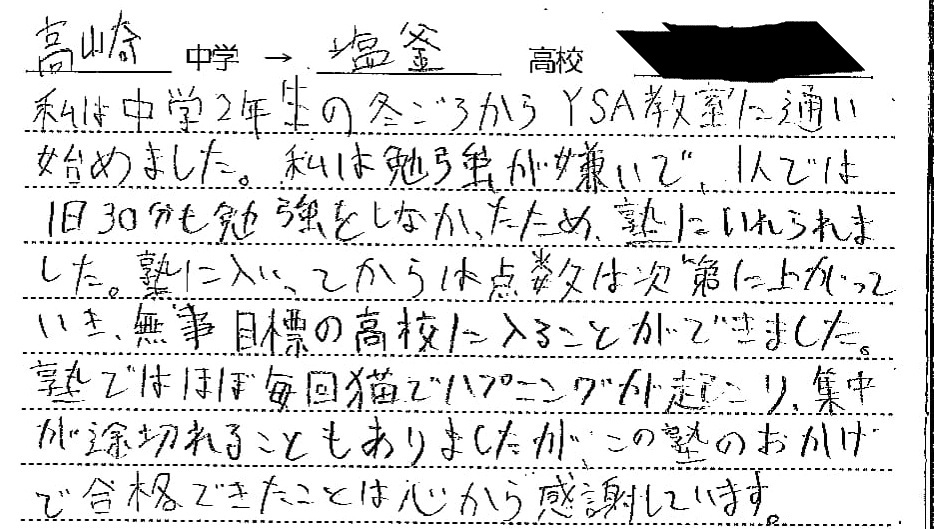 高崎 中学 → 塩釜 高校
私は中学2年生の冬ごろからYSA教室に通い
始めました。私は勉強が嫌いで、1人では
1日30分も勉強をしなかったため、塾にいれられま
した。塾に入ってからは点数は次第に上がって
いき、無事目標の高校に入ることができました。
塾ではほぼ毎回猫でハプニングが起こり、集中
が途切れることもありましたが、この塾のおかげ
で合格できたことは心から感謝しています。